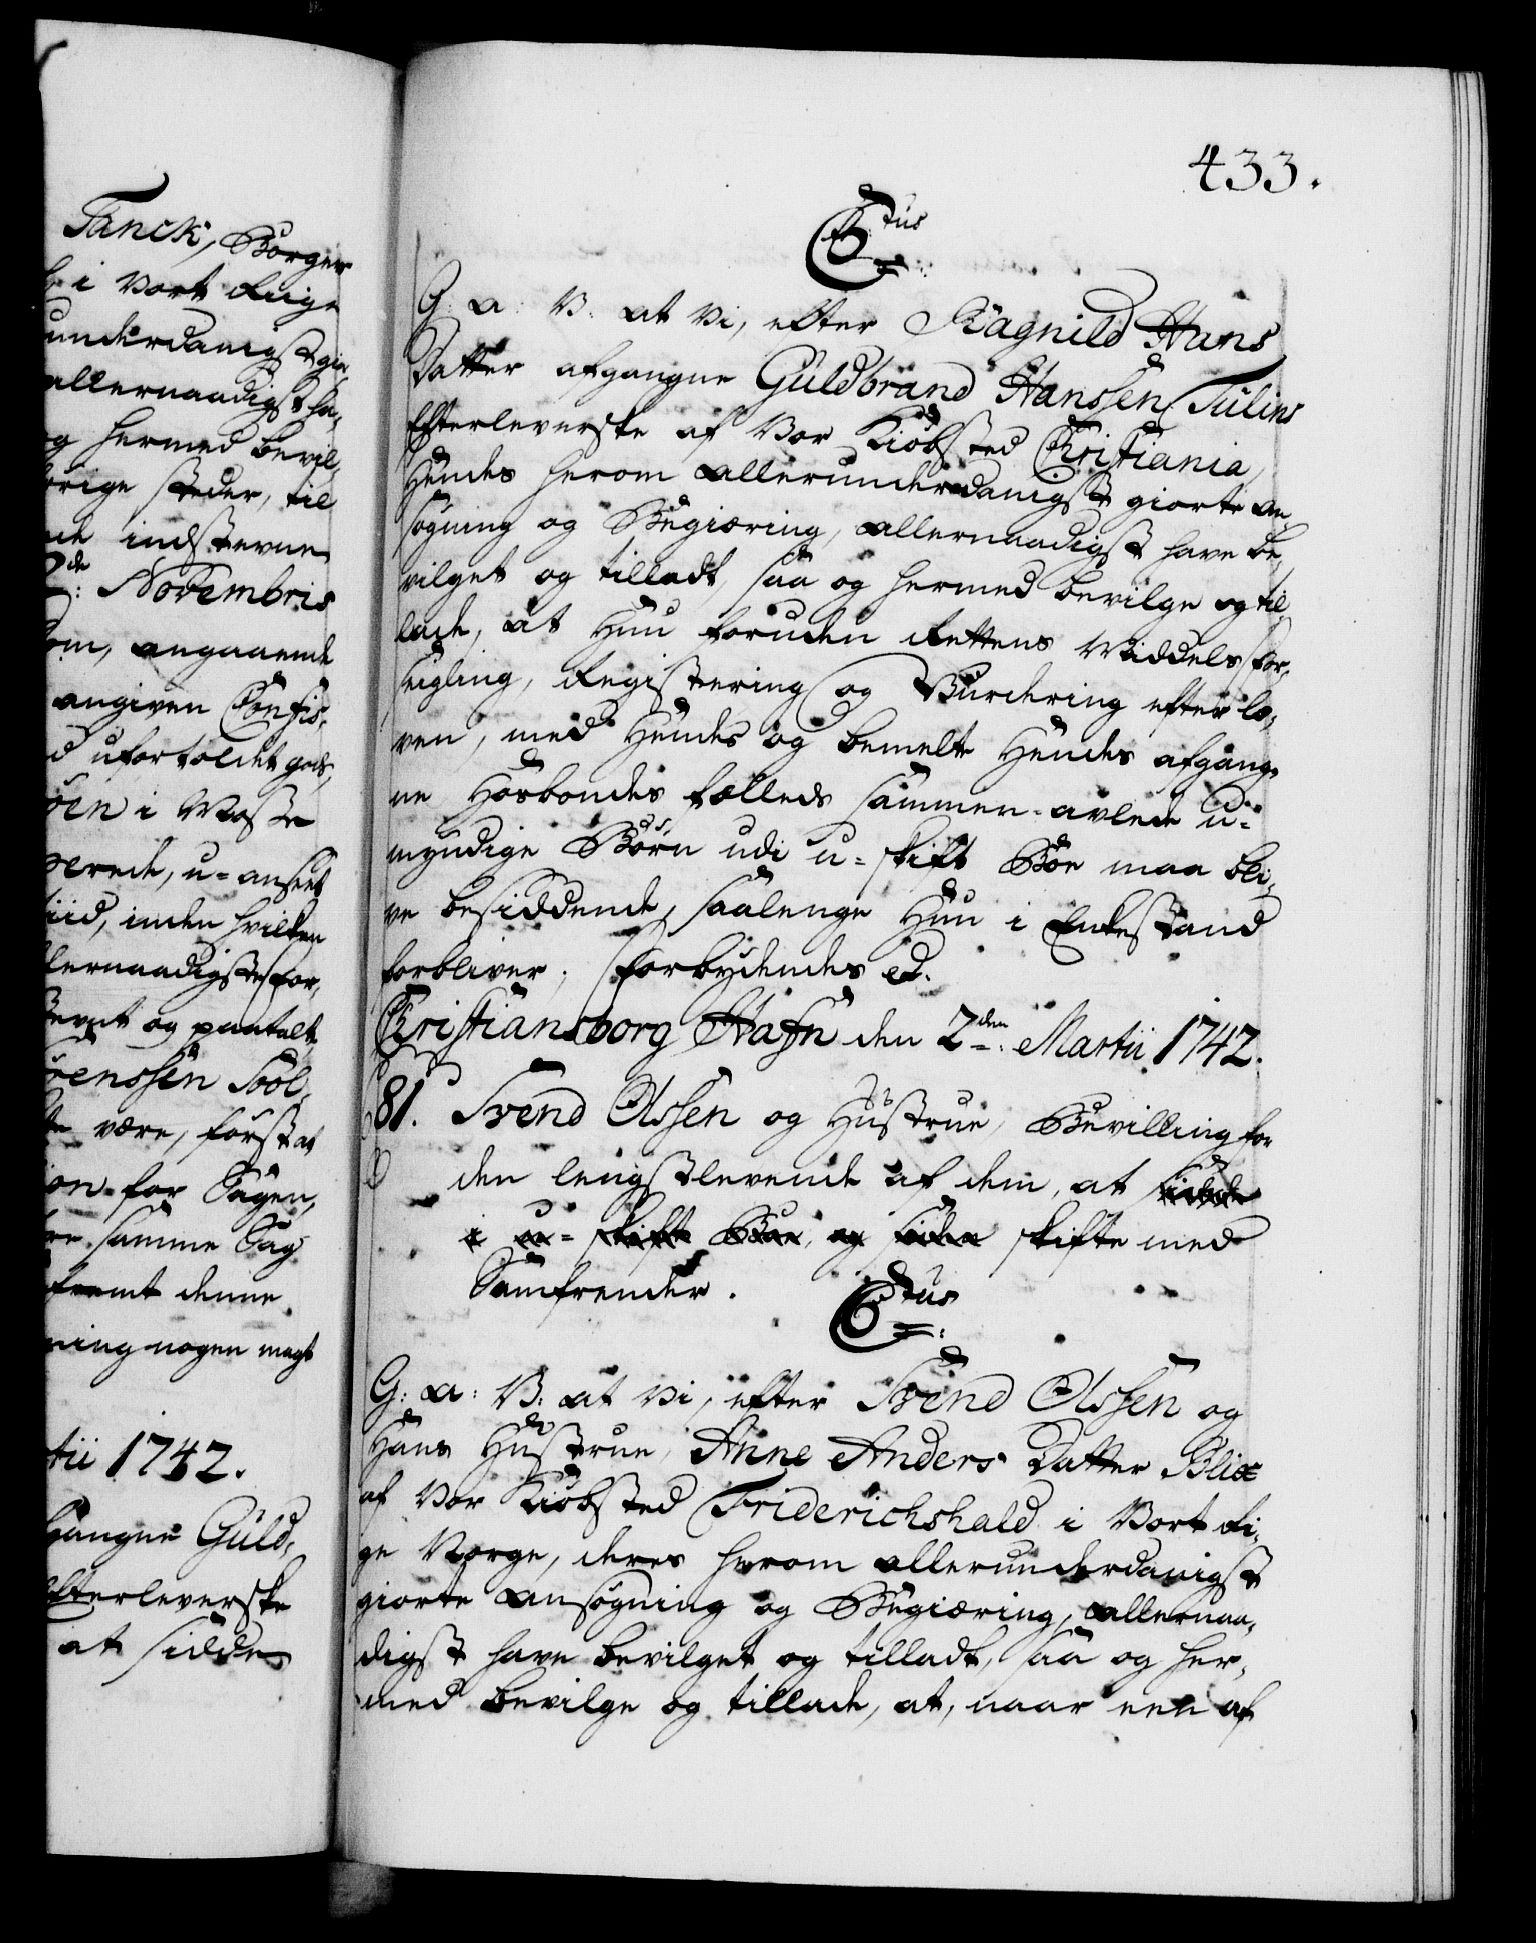 Tanck, Borger
i Vort Riige
underdanigst gio
allernaadigst ha,
og hermed bevil,
rige steder, til
indstevne
2de: Novembris
om, angaaende
angiven Confis,
ufortoldet gods,
i Mosse
u-anseet
tiid, inden hvilken
lernaadigste for,
stevnt og paatalt
renssen Sool,
være, først at
on for Sagen,
samme Sag
fremt denne
ning nogen magt
tii 1742.
gangne Guld,
Efterleverske
at sidde
433.
C6tus
G: a: V: at Vi, efter Ragnild Hans
Datter afgangne Guldbrand Hanssen Tulins
Efterleverske af Vor Kiøbsted Christiania,
Hendes herom allerunderdanigst giorte an,
søgning og Begiæring, allernaadigst have be,
vilget og tilladt, saa og hermed bevilge og til,
lade, at Hun foruden Rettens Middels for,
seigling, Registering og Vurdering efter lo,
ven, med Hendes og bemelte Hendes afgang,
ne Hosbondes fælleds sammen-avlede u-
myndige Børn udi u-skift Boe maa bli,
ve besiddende, saalenge Hun i Enkestand
forbliver; Forbydendes etc.
Christiansborg Hafn den 2den: Martii 1742.
81. Svend Olssen og Hustrue, Bevilling for
den lengstlevende af dem, at sidde
i u-skifte Boe, og siden skifte med
Samfrender.
C6tus
G: a: V: at Vi, efter Svend Olssen og
Hans Hustrue, Anne Anders Datter Blix
af Vor Kiøbsted Friderichshald i Vort Ri,
ge Norge, deres herom allerunderdanigst
giorte ansøgning og Begiæring, allernaa,
digst have bevilget og tilladt, saa og her,
med bevilge og tillade, at, naar een af